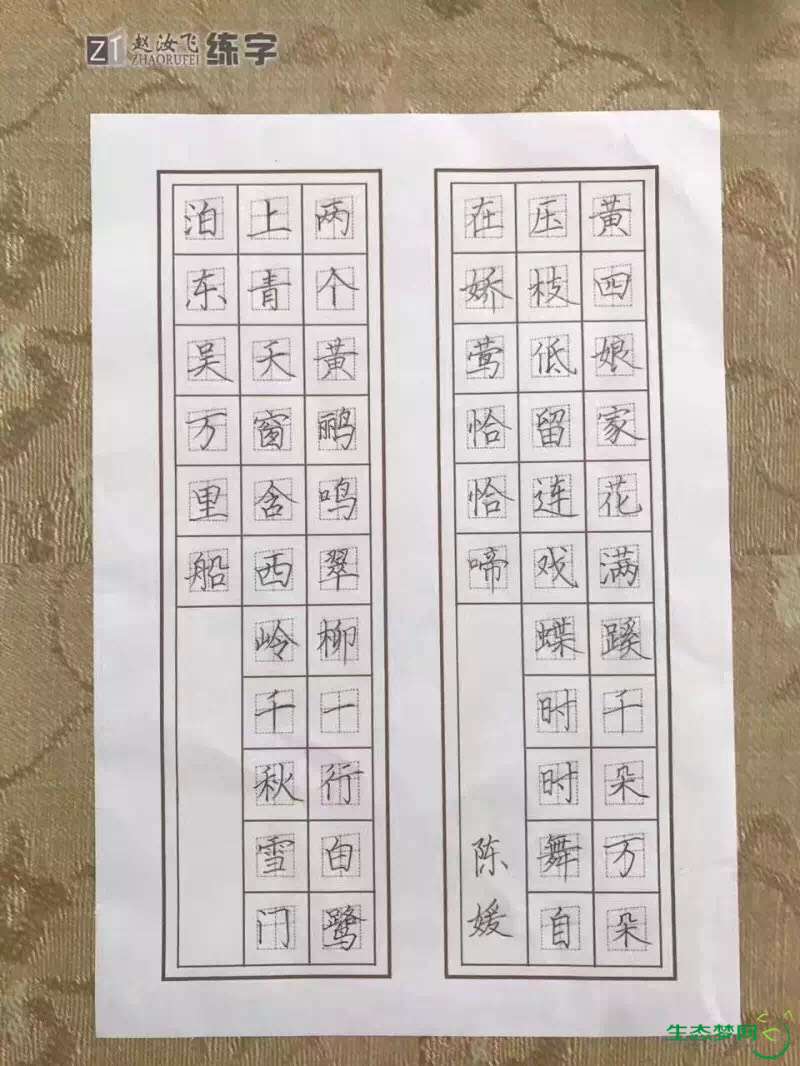 ZT 赵汝飞 ZHAORUFEI 练字
黄四娘家花满蹊千朵万朵
压枝低留连戏蝶时时舞自
在娇莺恰恰啼
陈媛
两个黄鹂鸣翠柳一行白鹭
上青天窗含西岭千秋雪门
泊东吴万里船
生态梦网